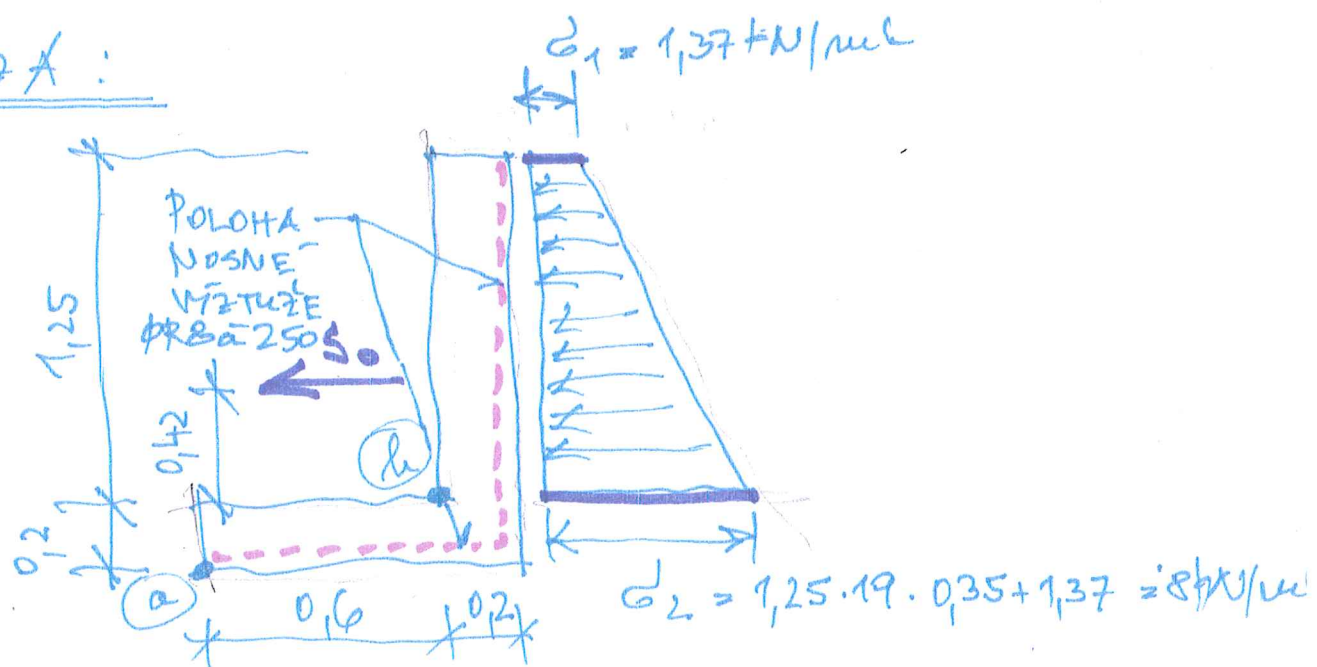 A :
σ₁ = 1,37 kN/m²
POLOHA
NOSNÉ
VÝZTUŽE
ØR8 á 250
S.
1,25
0,42
0,2
b
a
0,6
0,2
σ₂ = 1,25·19·0,35+1,37 ≐ 8 kN/m²